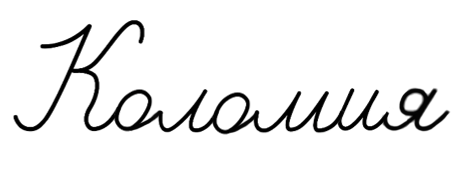 Коломия